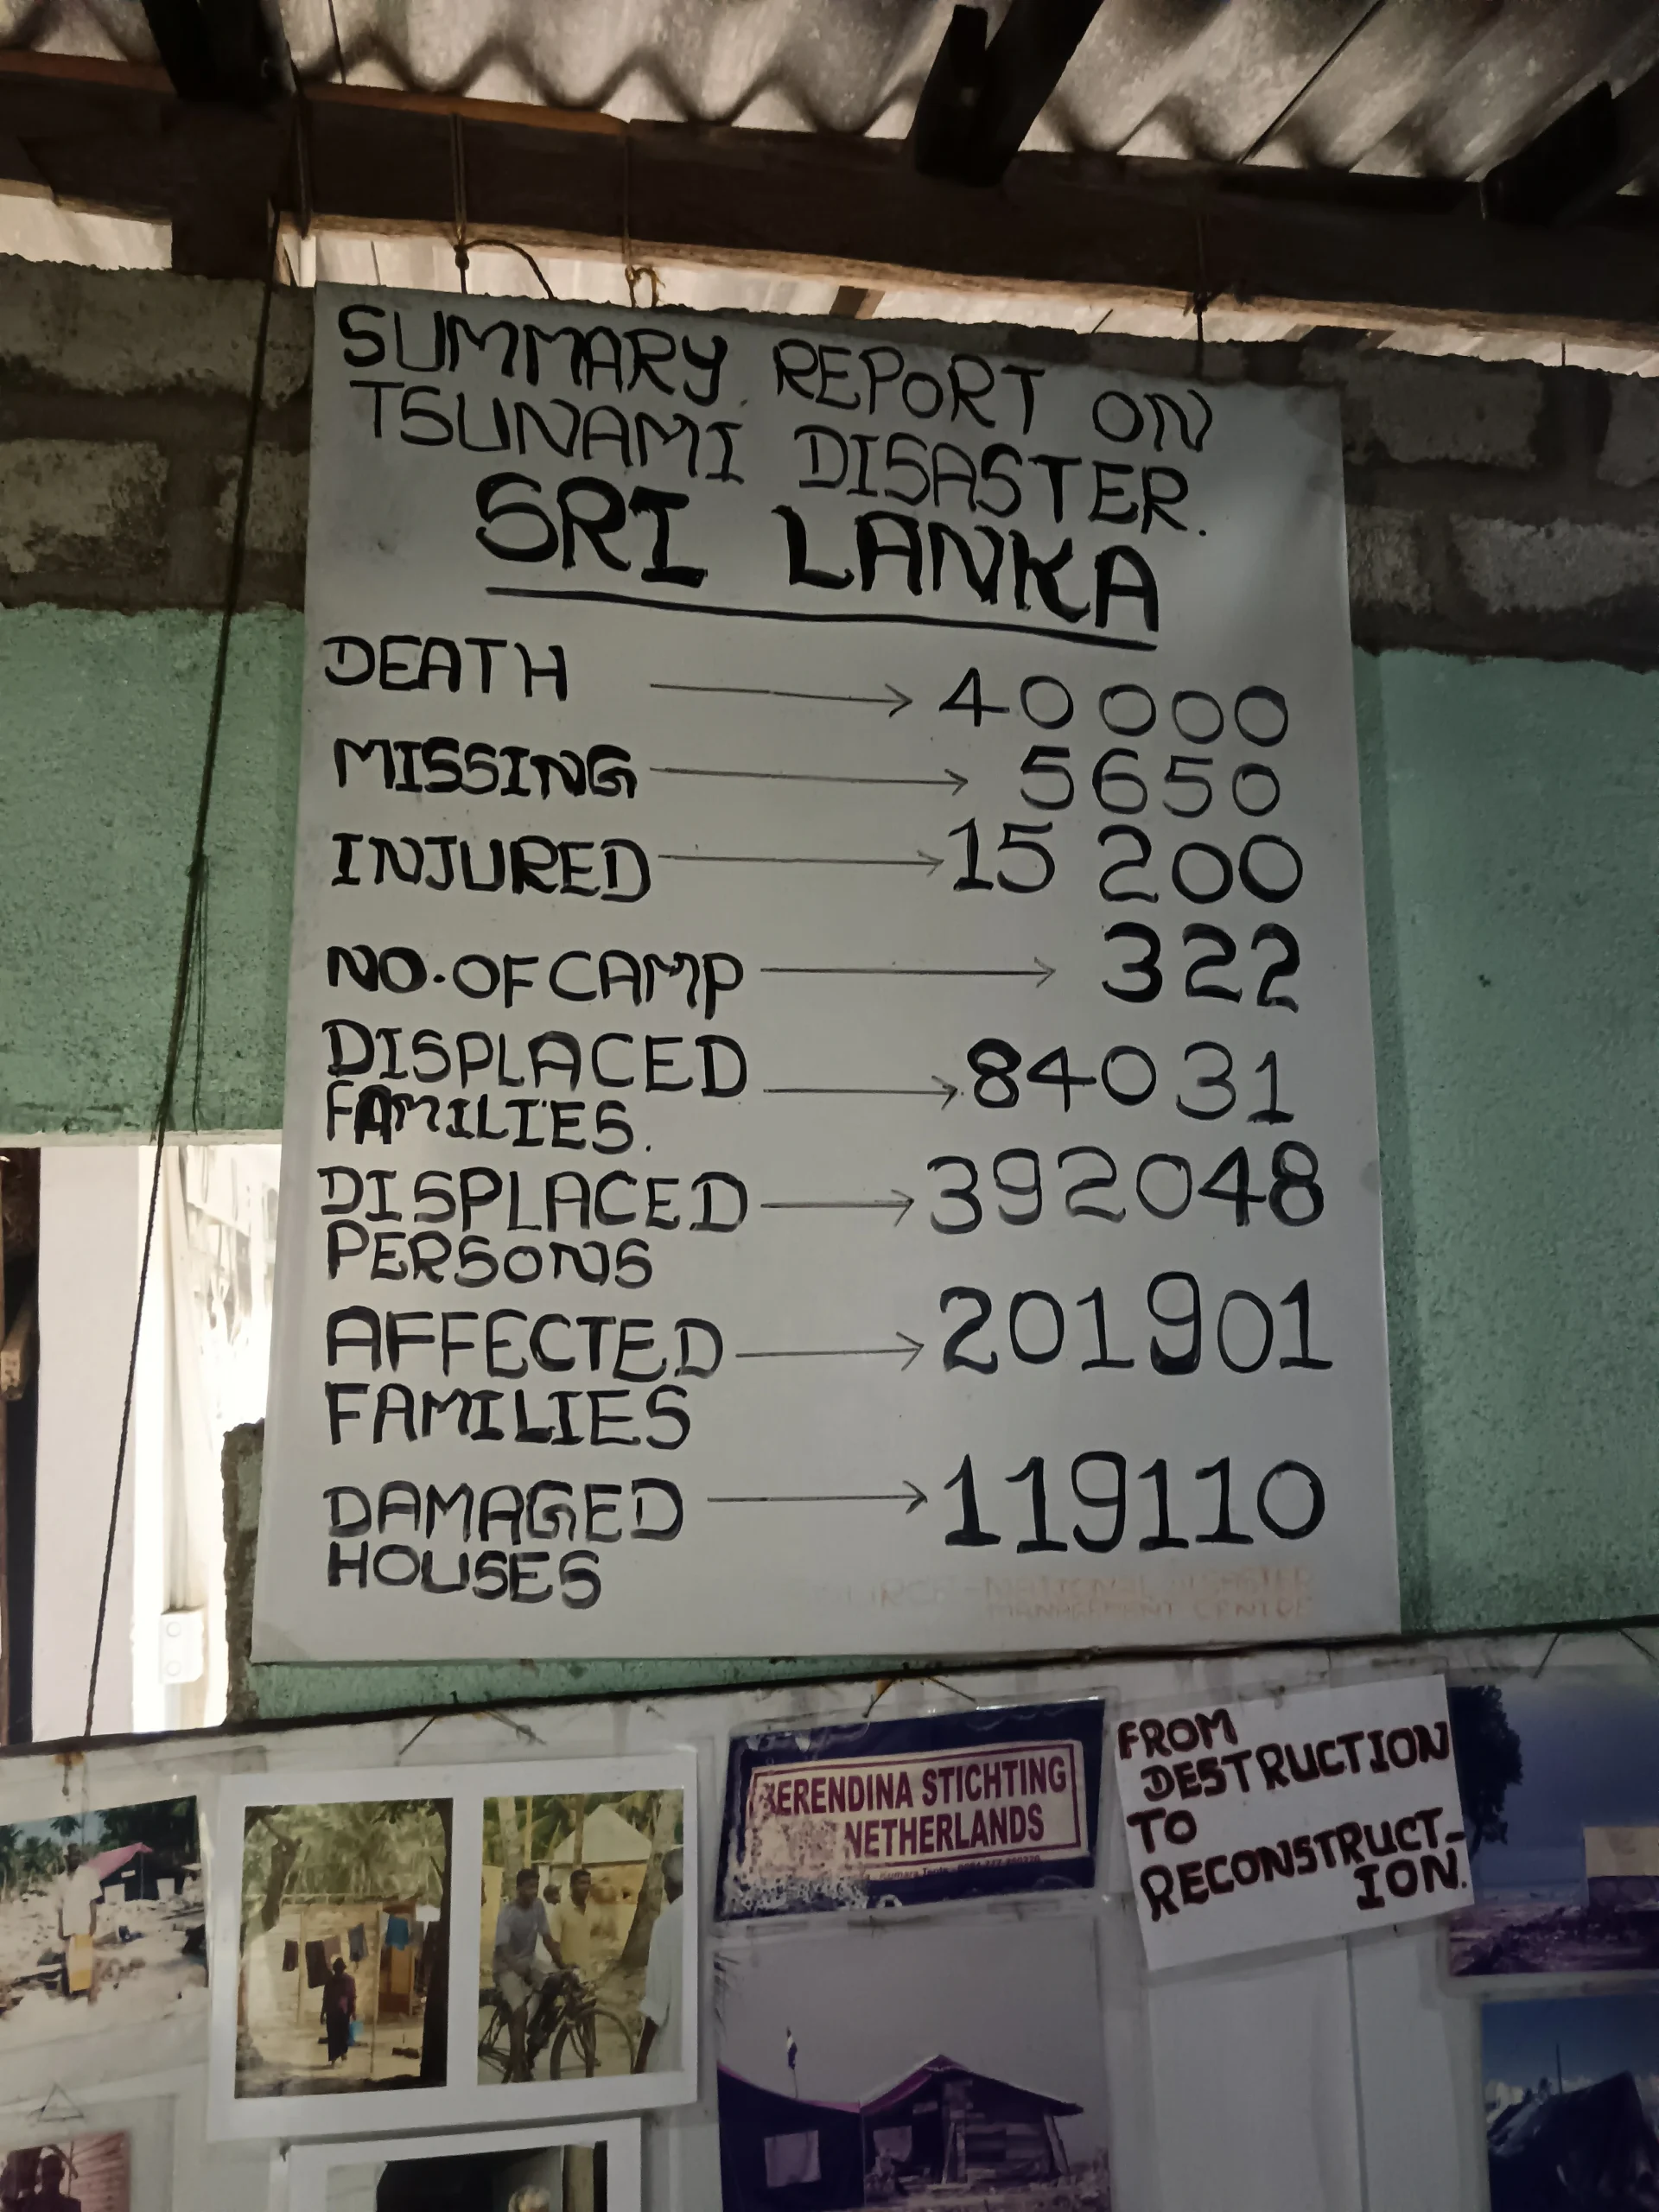 SUMMARY REPORT ON
TSUNAMI DISASTER.
SRI LANKA
DEATH → 40000
MISSING → 5650
INJURED → 15 200
NO. OF CAMP → 322
DISPLACED → 84031
FAMILIES.
DISPLACED → 392048
PERSONS
AFFECTED → 201901
FAMILIES
DAMAGED → 119110
HOUSES
NATIONAL DISASTER
MANAGEMENT CENTRE
STICHTING
NETHERLANDS
FROM
DESTRUCTION
TO
RECONSTRUCT-
ION.